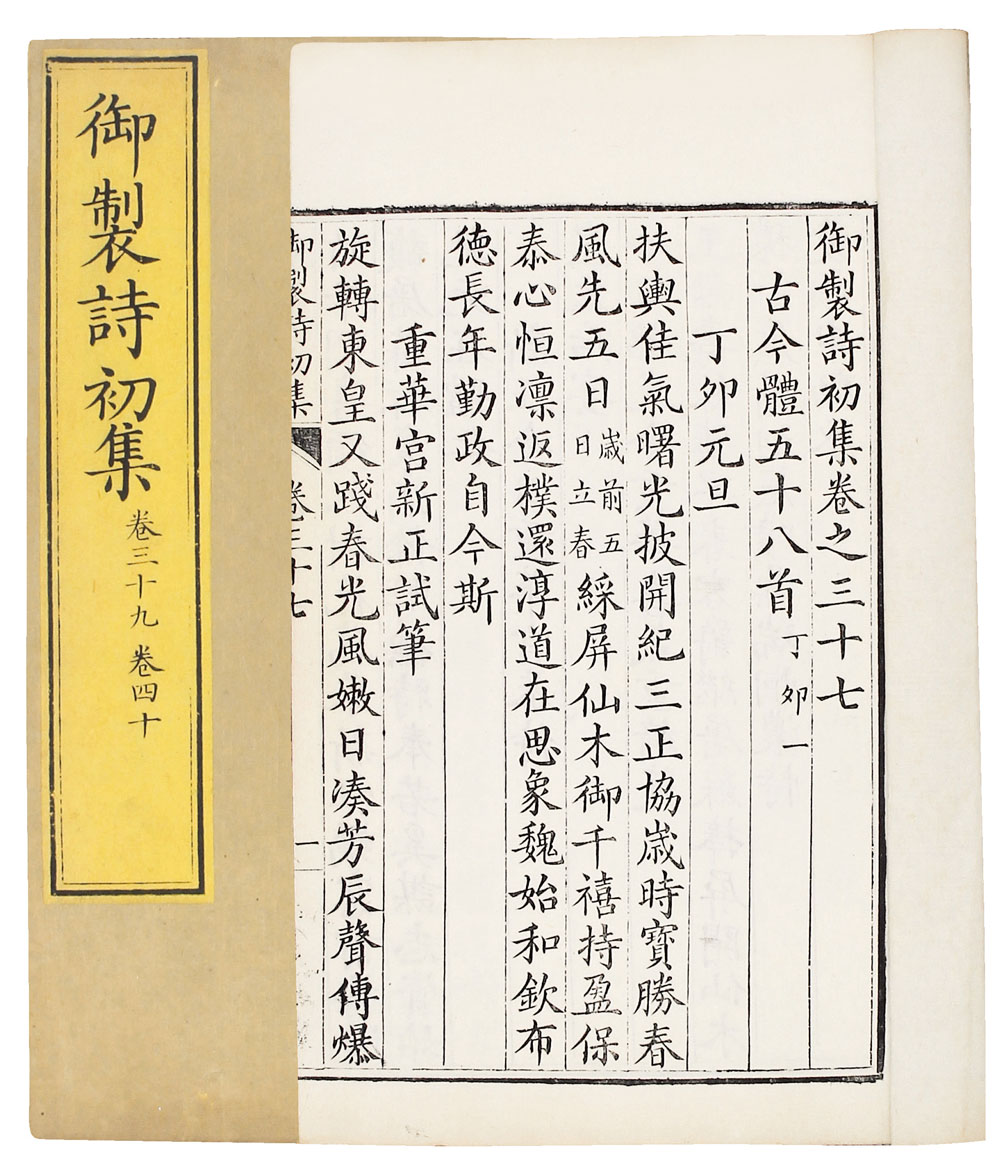 御製詩初集卷之三十七
古今體五十八首 丁夘一
丁夘元旦
扶輿佳氣曙光披開紀三正協歲時寶勝春
風先五日歲前五日立春綵屏仙木御千禧持盈保
泰心恒凛返樸還淳道在思象魏始和欽布
德長年勤政自今斯
重華宮新正試筆
旋轉東皇又踐春光風嫩日湊芳辰聲傳爆
御製詩初集 卷三十七 一
御製詩初集 卷三十九 卷四十